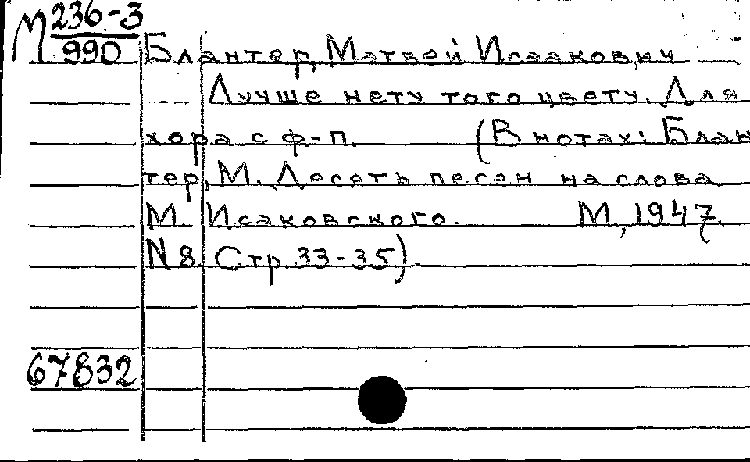 М 236-3
990
Блантер, Матвей Исаакович
Лучше нету того цвету. Для
хора с ф-п. (В нотах: Блан
тер, М. Десять песен на слова
М. Исаковского. М, 1947
N 8 Стр. 33-35).
67832